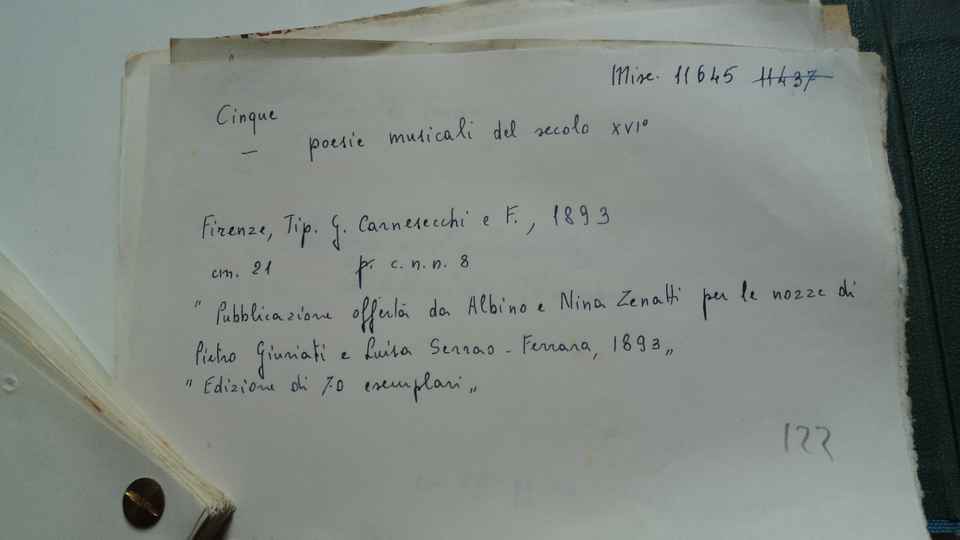 Misc. 11645 11437
Cinque
— poesie musicali del secolo XVI°
Firenze, Tip. G. Carnesecchi e F., 1893
cm. 21 p. c. n. n. 8
"Pubblicazione offerta da Albino e Nina Zenatti per le nozze di
Pietro Giuriati e Luisa Serrao - Ferrara, 1893„
"Edizione di 70 esemplari„
122